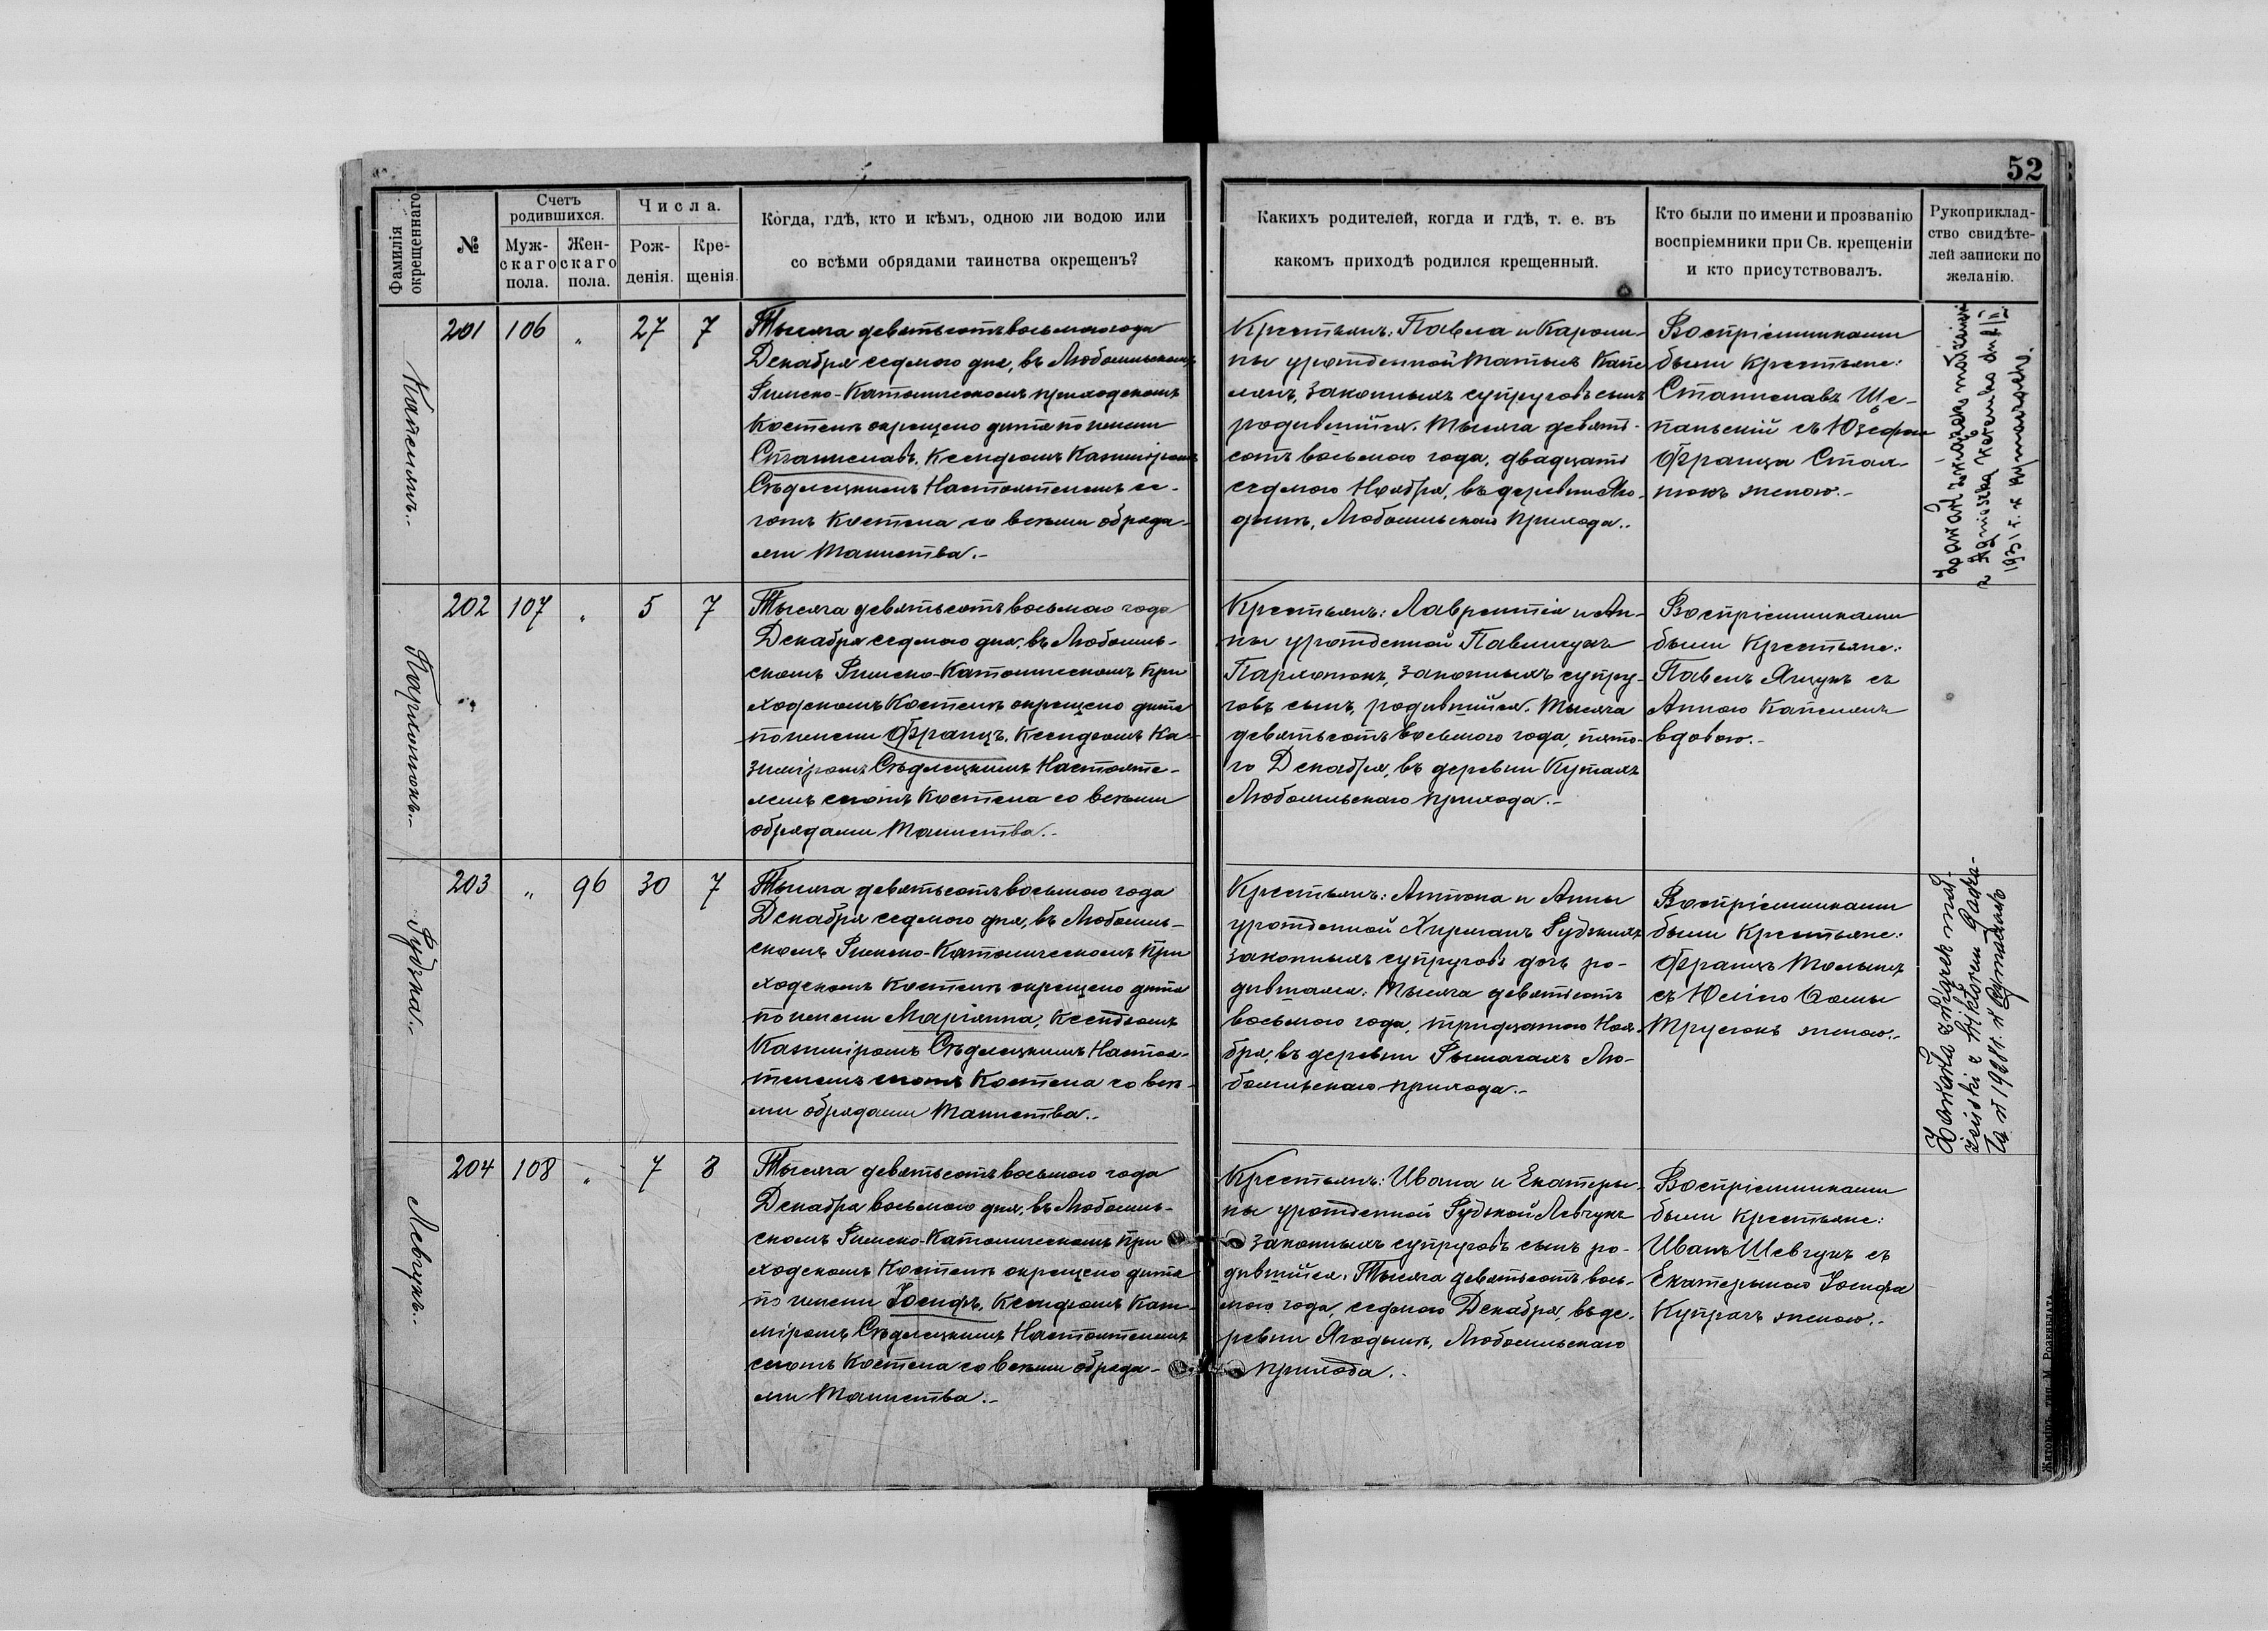 52
Фамилія окрещеннаго
№
Счетъ родившихся.
Мужскаго пола.
Женскаго пола.
Числа.
Рожденія.
Крещенія.
Когда, гдѣ, кто и кѣмъ, одною ли водою или
со всѣми обрядами таинства окрещенъ?
Какихъ родителей, когда и гдѣ, т. е. въ
какомъ приходѣ родился крещенный.
Кто были по имени и прозванію
воспріемники при Св. крещеніи
и кто присутствовалъ.
Рукоприклад-
ство свидѣте-
лей записки по
желанію.
201 106 „ 27 7
Тысяча девятьсотъ восьмого года
Декабря седмого дня, въ Любомльскомъ
Римско-Католическомъ приходскомъ
Костелѣ окрещено дитя по имени
Станиславъ, Ксендзомъ Казиміромъ
Сѣдлецкимъ Настоятелемъ се-
гожъ Костела со всѣми обряда-
ми Таинства.-
Крестьянъ: Павла и Кароли-
ны урожденной
законныхъ супруговъ сынъ
родившійся. Тысяча девять-
сотъ восьмого года, двадцать
седмого Ноября, въ деревни Яго-
дынѣ, Любомльскаго прихода..
Воспріемниками
были Крестьяне:
Станиславъ Ще-
паньскій съ Юзефою
Франца
женою.-
Zawarł związek małżeński
z Agnieszką
1931 r. w Rymaczach.
202 107 „ 5 7
Тысяча девятьсотъ восьмого года
Декабря седмого дня, въ Любомль-
скомъ Римско-Католическомъ при
ходскомъ Костелѣ окрещено дитя
по имени Францъ, Ксендзомъ Ка-
зиміромъ Сѣдлецкимъ Настояте-
лемъ сегожъ Костела со всѣми
обрядами Таинства.-
Пархомюкъ..
Крестьянъ: Лаврентія и Ан-
ны урожденной Павлищукъ
Пархомюкъ, законныхъ супру-
говъ сынъ, родившійся. Тысяча
девятьсотъ восьмого года, пято-
го Декабря, въ деревни Кутахъ
Любомльскаго прихода.-
Воспріемниками
были Крестьяне:
Павелъ Ящукъ съ
Анною
вдовою.-
203 „ 96 30 7
Рудзка..
Тысяча девятьсотъ восьмого года
Декабря седмого дня, въ Любомль-
скомъ Римско-Католическомъ при
ходскомъ Костелѣ окрещено дитя
по имени Маріанна, Ксендзомъ
Казиміромъ Сѣдлецкимъ Настоя-
телемъ сегожъ Костела со всѣ-
ми обрядами Таинства.-
Крестьянъ: Антона и Анны
урожденной
законныхъ супруговъ дочь ро-
дившаяся. Тысяча девятьсотъ
восьмого года, тридцатого Ноя-
бря, въ деревни Рымачахъ Лю-
бомльскаго прихода.-
Воспріемниками
были Крестьяне:
Францъ
съ Юліею Ѳомы
женою.-
Zawarła związek mał-
żeński z Wiktorem
w Rymaczach
204 108 „ 7 8
Левчукъ..
Тысяча девятьсотъ восьмого года
Декабря восьмого дня, въ Любомль-
скомъ Римско-Католическомъ при
ходскомъ Костелѣ окрещено дитя
по имени Іосифъ, Ксендзомъ Кази-
міромъ Сѣдлецкимъ Настоятелемъ
сегожъ Костела со всѣми обряда-
ми Таинства.-
Крестьянъ: Ивана и Екатеры-
ны урожденной Рудзкой Левчукъ
законныхъ супруговъ сынъ ро-
дившійся. Тысяча девятьсотъ вось-
мого года, седмого Декабря, въ де-
ревни Ягодынѣ, Любомльскаго
прихода.-
Воспріемниками
были Крестьяне:
Иванъ Шевчукъ съ
Екатерыною Іосифа
Купрачъ женою.-
Житоміръ, тип. М. Розенблата.